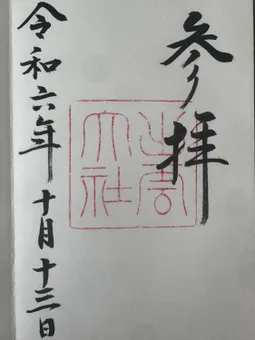 参拝
出雲大社
令和六年十月十三日